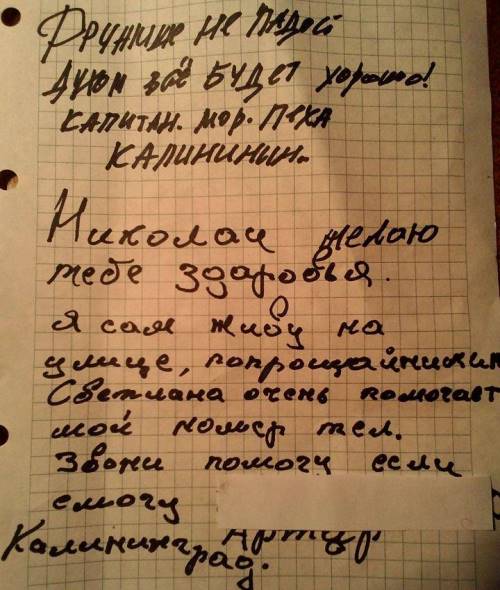 Дружище не падай
духом всё будет хорошо!
капитан. мор. пеха
Калининин.
Николаи желаю
тебе здаровья.
я сам живу на
улице, попрощайничи
Светлана очень помогает
мой номер тел.
Звони помогу если
смогу
Артур
Калининград.